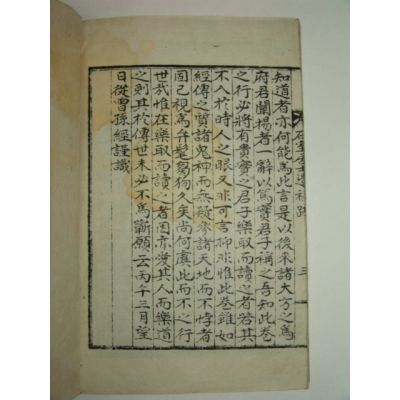 知道者亦何能爲此言是以後來諸大方之爲
府君闡揚者一辭以爲實君子稱之吾知此卷
之行必將有貴實之君子樂取而讀之者若其
不入於時人之眼又非可言抑非惟此卷雖如
經傳之質諸鬼神而無疑參諸天地而不悖者
固已視爲弁髦芻狗久矣尚何虞此而不之行
世哉惟在樂取而讀之者因亦愛其人而樂道
之則其於傳世未必不爲
願云丙午三月望
日從曾孫經謹識